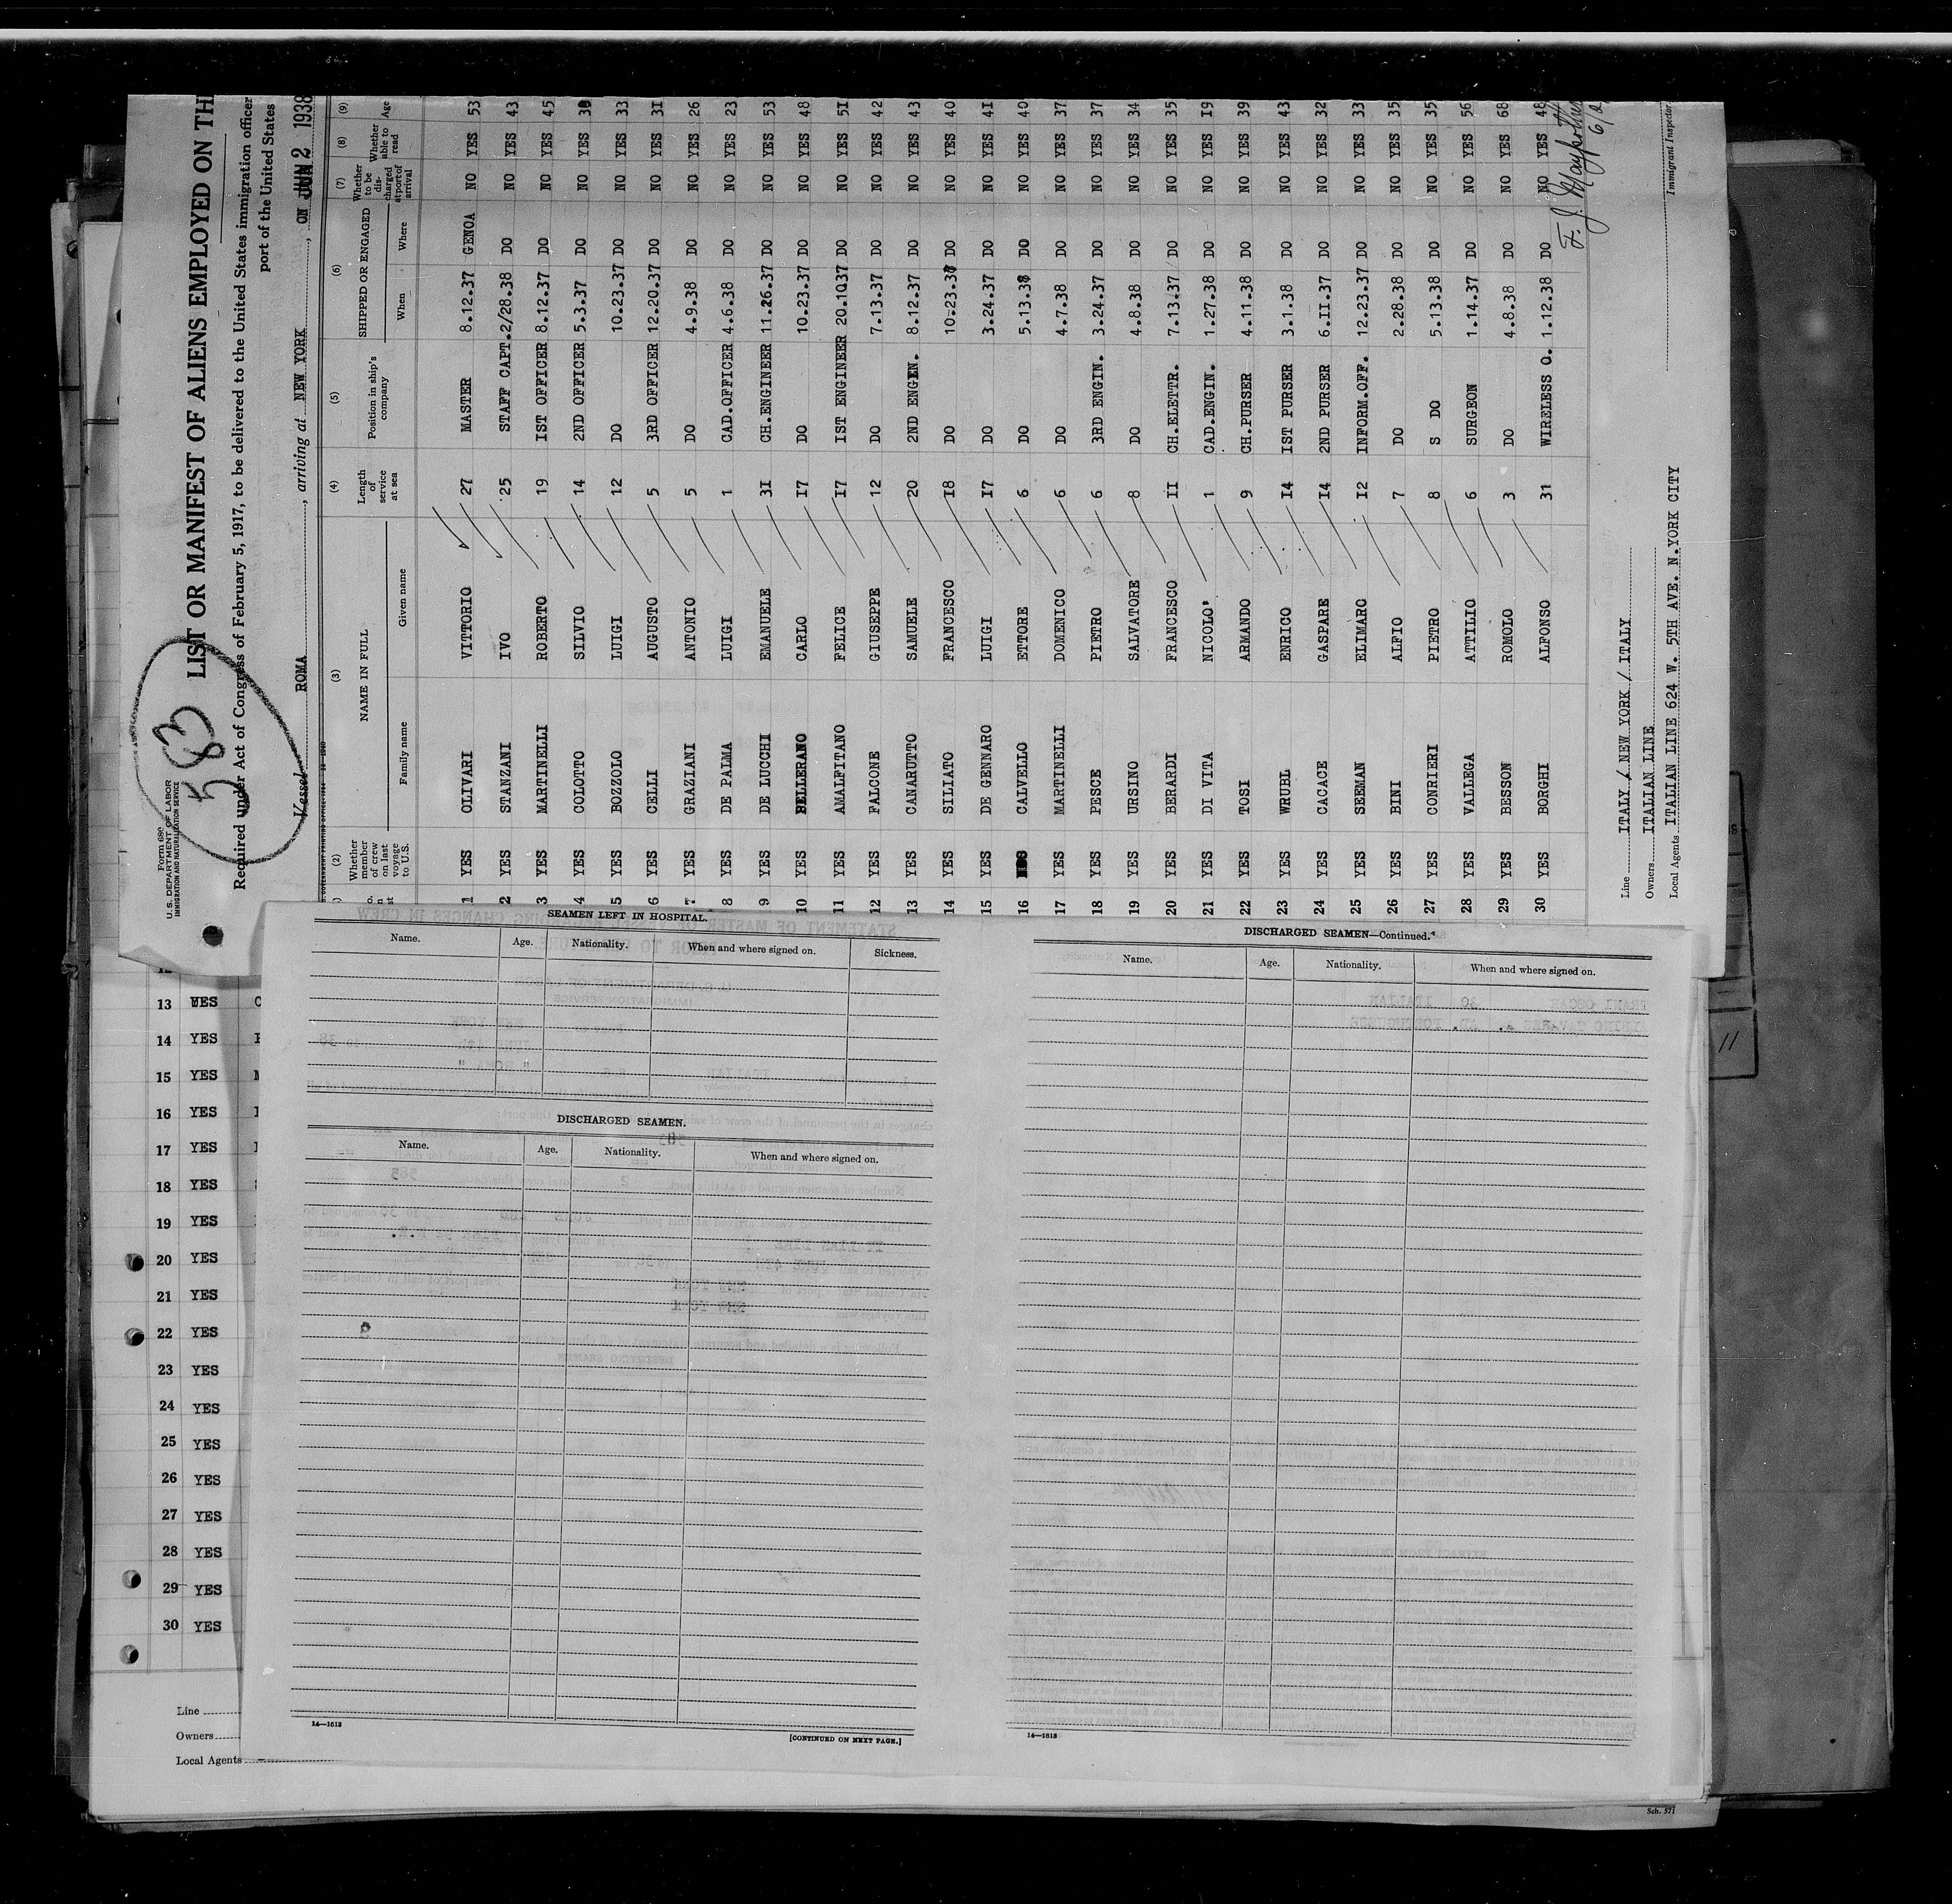 Form 680
U. S. DEPARTMENT OF LABOR
IMMIGRATION AND NATURALIZATION SERVICE
583
LIST OR MANIFEST OF ALIENS EMPLOYED ON TH
Required under Act of Congress of February 5, 1917, to be delivered to the United States immigration officer
port of the United States
Vessel ROMA, arriving at NEW YORK, ON JUN 2 1938
(2) (3) (4) (5) (6) (7) (8) (9)
Whether member of crew on last voyage to U.S. NAME IN FULL Family name Given name Length of service at sea Position in ship's company SHIPPED OR ENGAGED When Where Whether to be discharged at port of arrival Whether able to read Age
1 YES OLIVARI VITTORIO 27 MASTER 8.12.37 GENOA NO YES 53
2 YES STANZANI IVO 25 STAFF CAPT. 2/28.38 DO NO YES 43
3 YES MARTINELLI ROBERTO 19 IST OFFICER 8.12.37 DO NO YES 45
4 YES COLOTTO SILVIO 14 2ND OFFICER 5.3.37 DO NO YES
5 YES BOZZOLO LUIGI 12 DO 10.23.37 DO NO YES 33
6 YES CELLI AUGUSTO 5 3RD OFFICER 12.20.37 DO NO YES 3I
7 YES GRAZIANI ANTONIO 5 DO 4.9.38 DO NO YES 26
8 YES DE PALMA LUIGI 1 CAD.OFFICER 4.6.38 DO NO YES 23
9 YES DE LUCCHI EMANUELE 3I CH.ENGINEER 11.26.37 DO NO YES 53
10 YES BELLERANO CARLO I7 DO 10.23.37 DO NO YES 48
11 YES AMALFITANO FELICE I7 IST ENGINEER 20.10.37 DO NO YES 5I
12 YES FALCONE GIUSEPPE 12 DO 7.13.37 DO NO YES 42
13 YES CANARUTTO SAMUELE 20 2ND ENGEN. 8.12.37 DO NO YES 43
14 YES SILLATO FRANCESCO I8 DO DO NO YES 40
15 YES DE GENNARO LUIGI I7 DO 3.24.37 DO NO YES 4I
16 CALVELLO ETTORE 6 DO 5.13.38 DO NO YES 40
17 YES MARTINELLI DOMENICO 6 DO 4.7.38 DO NO YES 37
18 YES PESCE PIETRO 6 3RD ENGIN. 3.24.37 DO NO YES 37
19 YES URSINO SALVATORE 8 DO 4.8.38 DO NO YES 34
20 YES BERARDI FRANCESCO II CH.ELETTR. 7.13.37 DO NO YES 35
21 YES DI VITA NICOLO' 1 CAD.ENGIN. 1.27.38 DO NO YES I9
22 YES TOSI ARMANDO 9 CH.PURSER 4.11.38 DO NO YES 39
23 YES WRUBL ENRICO I4 IST PURSER 3.1.38 DO NO YES 43
24 YES CACACE GASPARE I4 2ND PURSER 6.II.37 DO NO YES 32
25 YES SEEMAN ELIMARO 12 INFORM.OFF. 12.23.37 DO NO YES 33
26 YES BINI ALFIO 7 DO 2.28.38 DO NO YES 35
27 YES CONRIERI PIETRO 8 S DO 5.13.38 DO NO YES 35
28 YES VALLEGA ATTILIO 6 SURGEON 1.14.37 DO NO YES 56
29 YES BESSON ROMOLO 3 DO 4.8.38 DO NO YES 68
30 YES BORGHI ALFONSO 31 WIRELESS O. 1.12.38 DO NO YES 48
Line ITALY / NEW YORK / ITALY
Owners ITALIAN LINE
Local Agents ITALIAN LINE 624 W. 5TH AVE. N.YORK CITY
Immigrant Inspector
SEAMEN LEFT IN HOSPITAL.
Name. Age. Nationality. When and where signed on. Sickness.
DISCHARGED SEAMEN.
Name. Age. Nationality. When and where signed on.
14—1613
[CONTINUED ON NEXT PAGE.]
DISCHARGED SEAMEN—Continued.
Name. Age. Nationality. When and where signed on.
14—1613
13 YES
14 YES
15 YES
16 YES
17 YES
18 YES
19 YES
20 YES
21 YES
22 YES
23 YES
24 YES
25 YES
26 YES
27 YES
28 YES
29 YES
30 YES
Line
Owners
Local Agents
11
Sch. 571